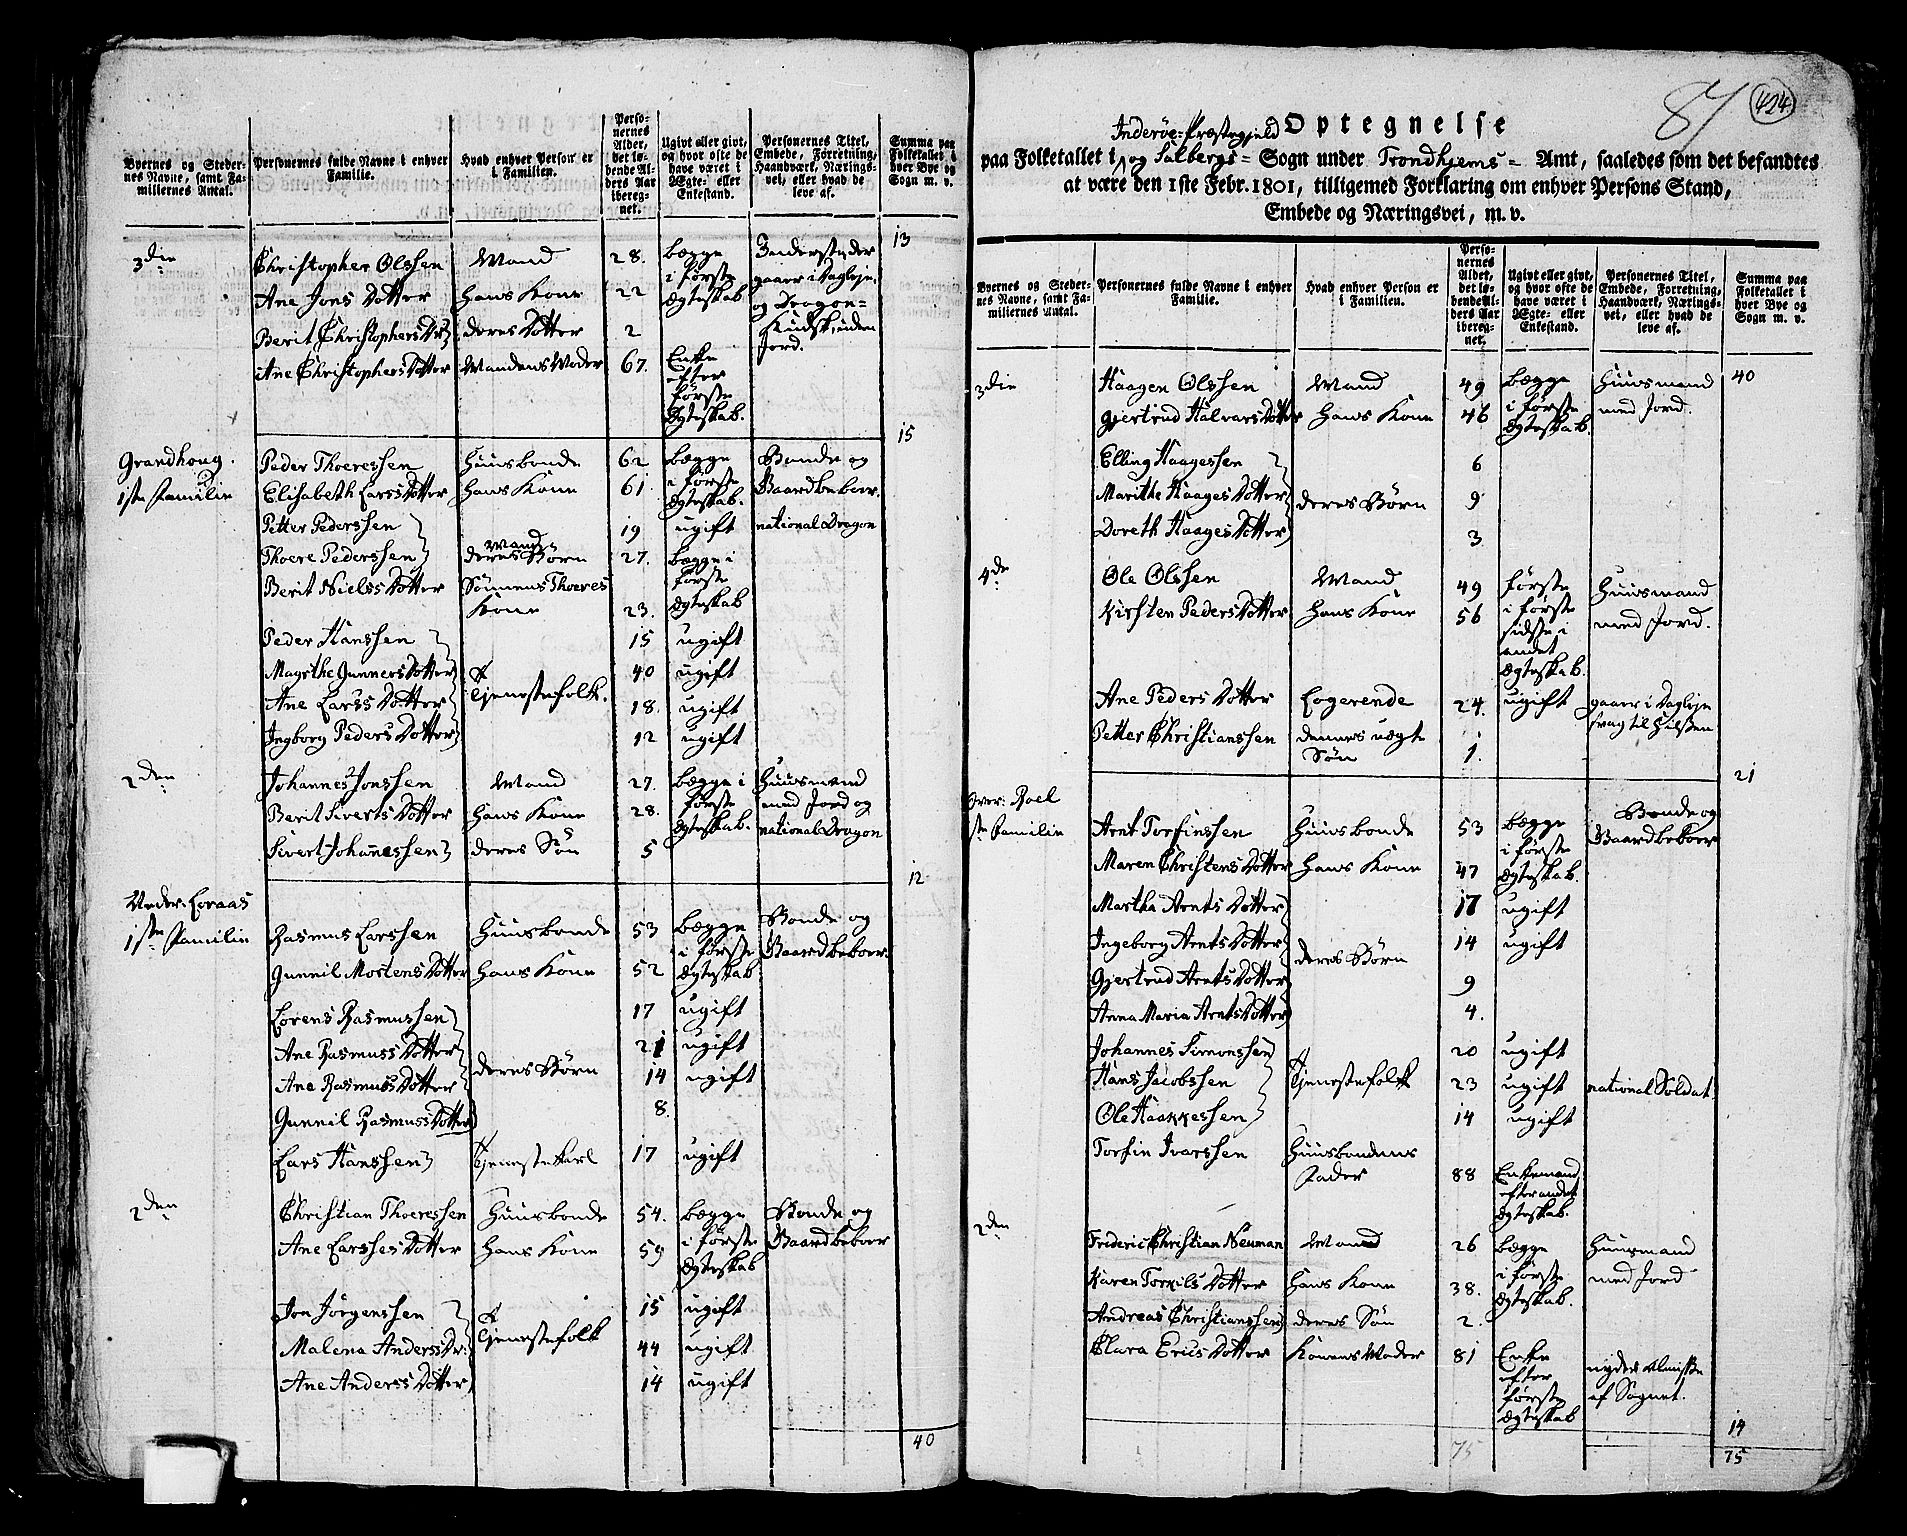 Byernes og Steder-
nes Navne, samt Fa-
miliernes Antal.
Personernes fulde Navne i enhver
Familie.
Hvad enhver Person er
i Familien.
Perso-
nernes
Alder,
det lø-
bende Al-
ders Aar
iberég-
net.
Ugivt eller givt,
og hvor ofte de
have været i
Ægte- eller
Enkestand.
Personernes Titel,
Embede, Forretning,
Haandværk, Nærings-
vei, eller hvad de
leve af.
Summa paa
Folketallet i
hver Bye og
Sogn m. v.
13
3die Christopher Olssen Mand 28. bægge
i første
Ægteskab
Ane Jons Dotter hans Kone 22
Berit Christophers Dr} deres Dotter 2
Jord.
Ane Christophers Dotter Mandens Moder 67. Enke
efter
første
Ægteskab.
15
Grandhoug.
1ste Familie
Peder Thoeressen Huusbonde 62 bægge
i første
Ægteskab. Bonde og
Gaardbeboer.
Elisabeth Lars Dotter hans Kone 61
Petter Pederssen 19 ugift national Dragon
Thoere Pederssen} deres Børn 27. bægge i
første
Ægteskab
Berit Niels Dotter Sønnens Thoeres
Kone 23.
Peder Hanssen 15 ugift
Magrthe Gunners Dotter 40 ugift
Ane Lars Dotter} Tjenestefolk. 18. ugift
Ingborg Peders Dotter 12 ugift
2den Johannes Jonssen Mand 27. bægge i
første
Ægteskab. Huusmand
med Jord og
national Dragon
Berit Siverts Dotter hans Kone 28.
Sivert Johannessen} deres Søn 5
12
Neder: Loraas
1ste Familie
Rasmus Larssen Huusbonde 53 bægge
i første
Ægteskab Bonde og
Gaardbeboer.
Gunnil Mortens Dotter hans Kone 52
Lorens Rasmussen 17 ugift
Ane Rasmuss Dotter 21 ugift
Ane Rasmuss Dotter} deres Børn 14 ugift
Gunnil Rasmuss Dotter 8.
Lars Hanssen} Tjenestekarl 17 ugift
2den Christian Thoeressen Huusbonde 54. bægge
i første
Ægteskab Bonde og
Gaardbeboer
Ane Larsses Dotter hans Kone 59
Jon Jörgenssen 15 ugift
Malena Anders Dr: Tjenestefolk 44 ugift
Ane Anders Dotter 14 ugift
40
87
424
Optegnelse
Inderøe-Præstegjeld
paa Folketallet i og Salbergs = Sogn under Trondhjems = Amt, saaledes som det befandtes
at være den 1ste Febr. 1801, tilligemed Forklaring om enhver Persons Stand,
Embede og Næringsvei, m. v.
Byernes og Steder-
nes Navne, samt Fa-
miliernes Antal.
Personernes fulde Navne i enhver
Familie.
Hvad enhver Person er
i Familien.
Perso-
nernes
Alder,
det lø-
bende Al-
ders Aar
ibereg-
net.
Ugivt eller givt,
og hvor ofte de
have været i
Ægte- eller
Enkestand.
Personernes Titel,
Embede, Forretning,
Haandværk, Nærings-
vei, eller hvad de
leve af.
Summa paa
Folketallet i
hver Bye og
Sogn m. v.
40
3die Haagen Olssen Mand 49 bægge
i første
Ægteskab. Huusmand
med Jord.
Gjertrud Halvars Dotter hans Kone 46
Elling Haagessen 6
Marithe Haages Dotter} deres Børn 9
Doreth Haages Dotter 3
4de Ole Olssen Mand 49 første
i første
sidste i
andet
Ægteskab. Huusmand
med Jord.
Kirsten Peders Dotter hans Kone 56
Ane Peders Dotter Logerende 24. ugift gaaer i Dagleje
Petter Christianssen dennes uægte
Søn 1.
21
Over: Roel
1ste Familie
Arnt Torfinssen Huusbonde 53 bægge
i første
Ægteskab. Bonde og
Gaardbeboer
Maren Christens Dotter hans Kone 47
Martha Arnts Dotter 17 ugift
Ingeborg Arnts Dotter 14 ugift
Gjertrud Arnts Dotter} deres Børn 9
Anna Maria Arnts Dotter 4.
Johannes Simonssen 20 ugift
Hans Jacobssen} Tjenestefolk 23 ugift national Soldat.
Ole Haakkessen 14 ugift
Torfin Ivarssen Huusbondens
Fader 88 Enkemand
efter andet
Ægteskab.
2den Frederic Christian Neuman Mand 26 bægge
i første
Ægteskab. Huusmand
med Jord
Karen Torkils Dotter hans Kone 38.
Andreas Christianssen} deres Søn 2.
Clara Erics Dotter Konens Moder 81 Enke
efter
første
Ægteskab nyder Almisse
af Sognet.
14
75
75